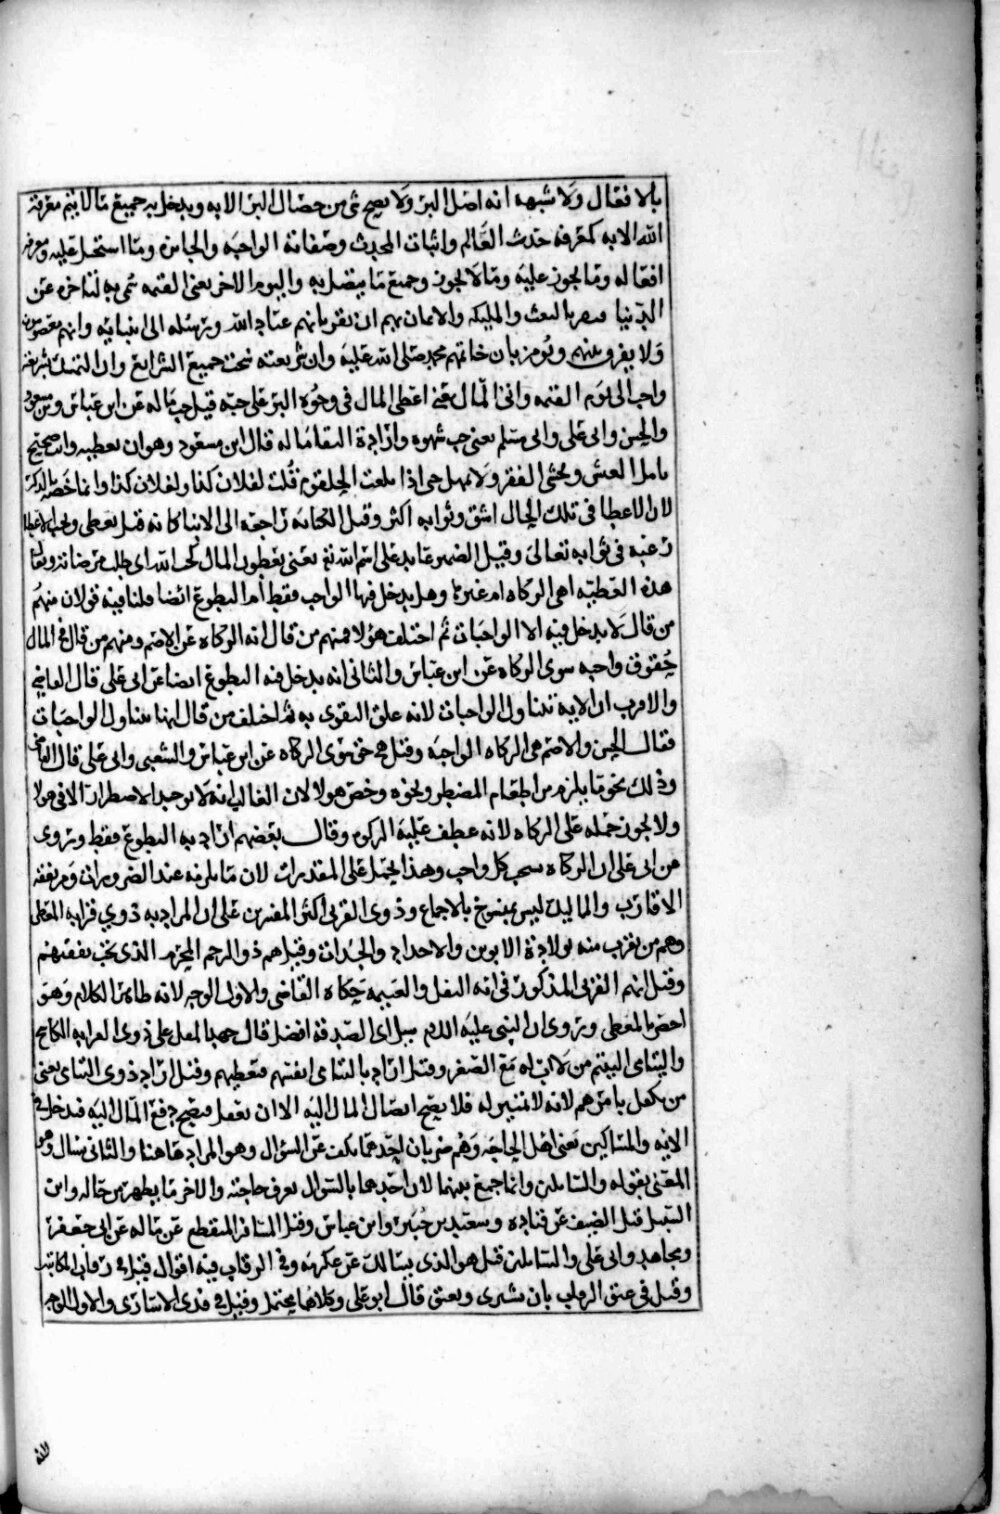 بالافعال ولا شبهه انه اصل البر ولا يصح شي من خصال البر الا به ويدخل به جميع ما لا يتم معرفة
الله الا به كمعرفة حدث العالم واثبات المحدث وصفاته الواجبه والجايزه وما استحيل عليه ومعرفه
افعاله وما يجوز عليه وما لا يجوز وجميع ما يتصل به واليوم الاخر يعني القيمه سمي به لتاخره عن
الدنيا بالبعث والمليكه والايمان بهم ان يقر بانهم عباد الله ورسله الى انبيايه وانهم معصومون
ولا يفرق بينهم ويومن بان خاتمهم محمد صلى الله عليه وان شريعته نسخت جميع الشرائع وان التمسك بشريعته
واجب الى يوم القيمه واتى المال يعني اعطى المال في وجوه البر على حبه قيل حب ماله عن ابن عباس وبن مسعود
والحسن وابي على وابي مسلم يعني حب شهوه وارادة البقاء ماله قال ابن مسعود وهو ان تعطيه وانت صحيح
تامل العيش وتخشى الفقر ولا تمهل حتى اذا بلغت الحلقوم قلت لفلان كذا ولفلان كذا وانما خصه بالذكر
لان الاعطا في تلك الحال اشق وثوابه اكثر وقيل الكنايه راجعه الى الايتا كانه قيل يعطي ويحب الاعطا
رغبه في ثوابه تعالى وقيل الضمير عايد على اسم الله تع يعني يعطون المال لحب الله اي طلب مرضاته ويقال
هذه العطيه اهي الزكاه ام غيرها وهل يدخل فيها الواجب فقط ام التطوع ايضا قلنا فيه قولان منهم
من قال لا يدخل فيه الا الواجبات ثم اختلف هؤلا فمنهم من قال انه الزكاه عن الاصم ومنهم من قال في المال
حقوق واجبه سوى الزكاه عن ابن عباس والثاني انه يدخل فيه التطوع ايضا عن ابي على قال القاضي
والاقرب ان الايه تتناول الواجبات لانه علق التقوى به ثم اختلف من قال انها تتناول الواجبات
فقال الحسن والاصم هي الزكاه الواجبه وقيل هي حق سوى الزكاه عن ابن عباس والشعبي وابي على قال القاضي
وذلك نحو ما يلزم من اطعام المضطر ونحوه وخص هولا لان الغالب انه لا يوجد الاضطرار الا في هولا
ولا يجوز حمله على الزكاه لانه عطف عليه الزكوه وقال بعضهم اراد به التطوع فقط وتروى
عن ابي على ان الزكاه نسخت كل واجب وهذا يحمل على المقدرات لان ما يلزمه عند الضرورات ومن نفقة
الاقارب والماليك ليس بمنسوخ بالاجماع وذوي القربى اكثر المفسرين على ان المراد به ذوي قرابه المعطي
وهم من يقرب منه بولادة الابوين والاجداد والجدات وقيل هم ذو الرحم المحرم الذي تجب نفقتهم
وقيل انهم القربى المذكور في انه النفل والغنيمه حكاه القاضي والاول الوجه لانه ظاهر الكلام وهو
احض بالمعطي وتروى ان النبي عليه السلم سئل اي الصدقة افضل قال جهد المقل على ذوي القرابه الكاشح
واليتامى اليتيم من لا اب له مع الصغر وقيل اراد باليتامى انفسهم فتعطيهم وقيل اراد ذوي اليتامى يعني
من يكفل بامرهم لانه لا تمييز له فلا يصح ايصال المال اليه الا ان يعقل فيصح دفع المال اليه فيدخل في
الايه والمساكين يعني اهل الحاجه وهم ضربان احدهما يكف عن السؤال وهو المراد هاهنا والثاني يسال وهو
المعنى بقوله والسائلين وانما جمع بينهما لان احدهما بالسوال يعرف حاجته والاخر ما يظهر من حاله وابن
السبيل قيل الضيف عن قتاده وسعيد بن جبير وابن عباس وقيل المسافر المنقطع عن ماله عن ابي جعفر
ومجاهد وابي على والسائلين قيل هو الذي يسالك عن عكرمه وفي الرقاب فيه اقوال قيل في رقاب المكاتبين
وقيل في عتق الرقاب بان يشترى ويعتق قال ابو على وكلاهما يحتمل وقيل في فدى الاسارى والاول الوجه
لانه